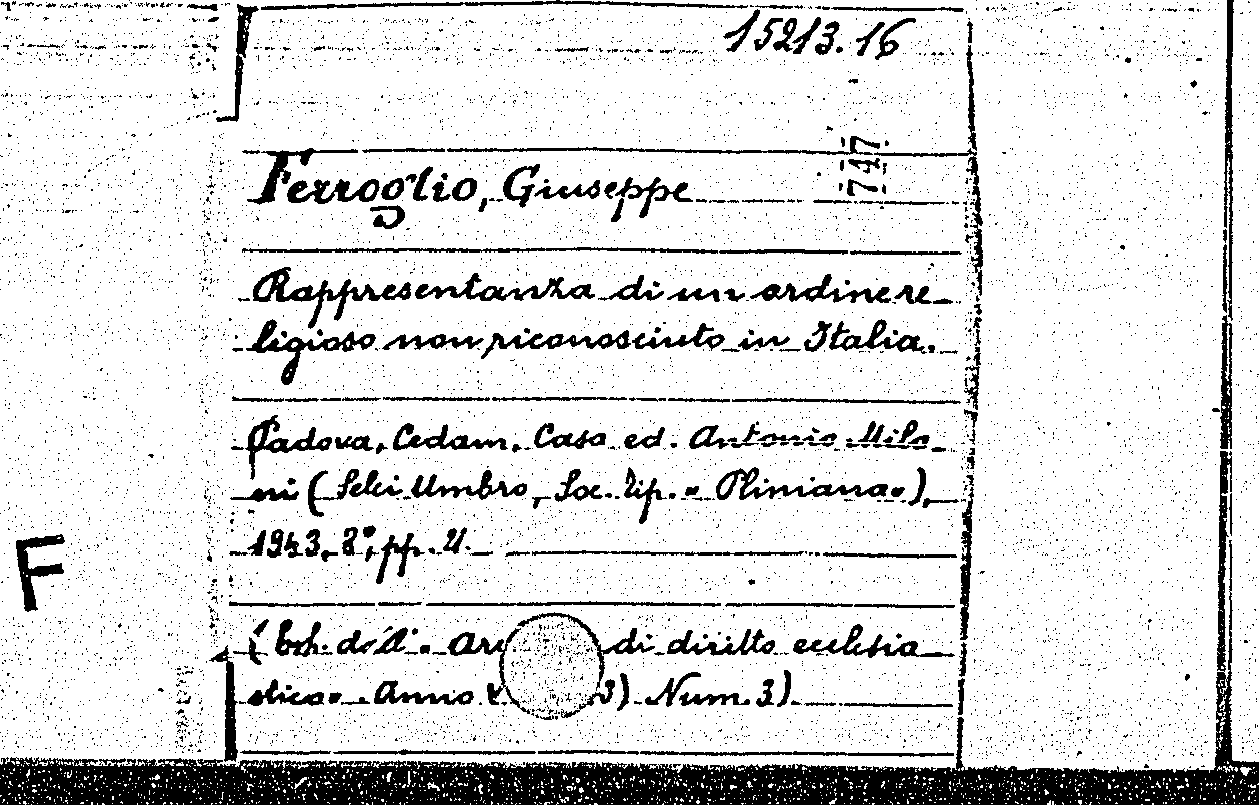 15213.16
747
Ferroglio, Giuseppe
Rappresentanza di un ordine re-
ligioso non riconosciuto in Italia.
Padova, Cedam, Casa ed. Antonio Mila-
ni (Selci Umbro, Soc. Tip. « Pliniana»),
1943, 8°, pp. 4.
F
(Est. di diritto ecclesia-
stico». Anno 3) Num. 3)